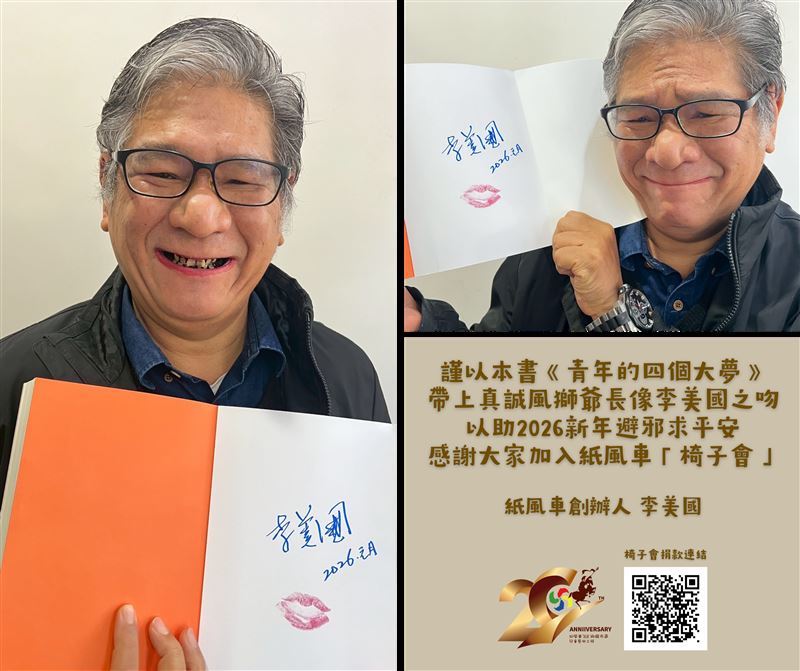 李美國
2026.元月
李美國
2026.元月
謹以本書《青年的四個大夢》
帶上真誠風獅爺長像李美國之吻
以助2026新年避邪求平安
感謝大家加入紙風車「椅子會」
紙風車創辦人 李美國
椅子會捐款連結
20TH
ANNIIVERSARY